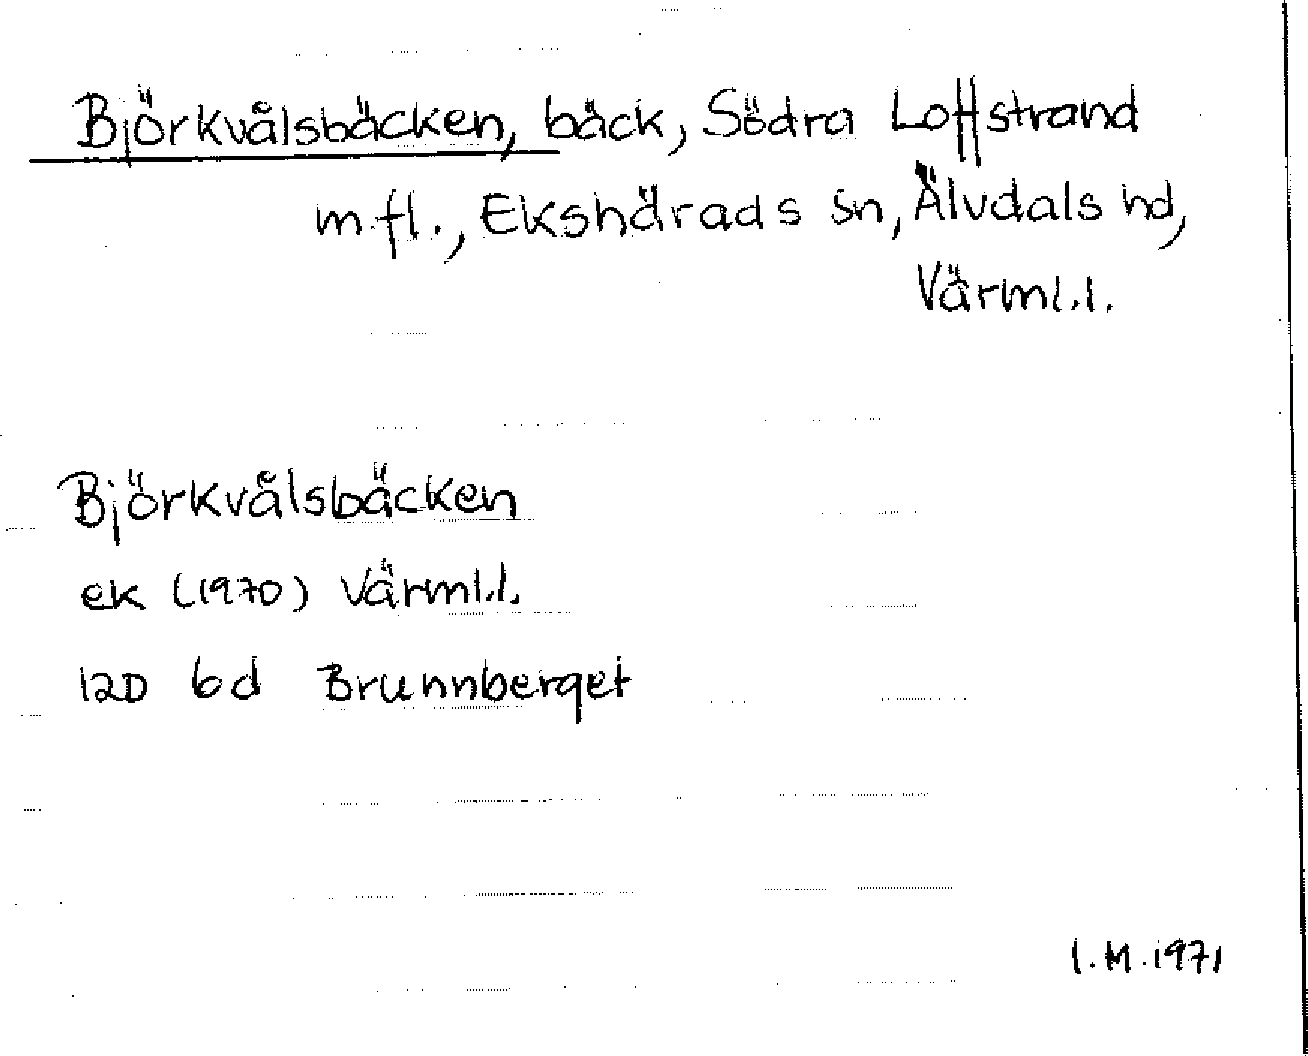 Björkvålsbäcken, bäck, Södra Loffstrand
m.fl., Ekshärads sn, Älvdals hd,
Värml.l.
Björkvålsbäcken
ek (1970) Värml.l.
12D 6d Brunnberget
I.M. 1971